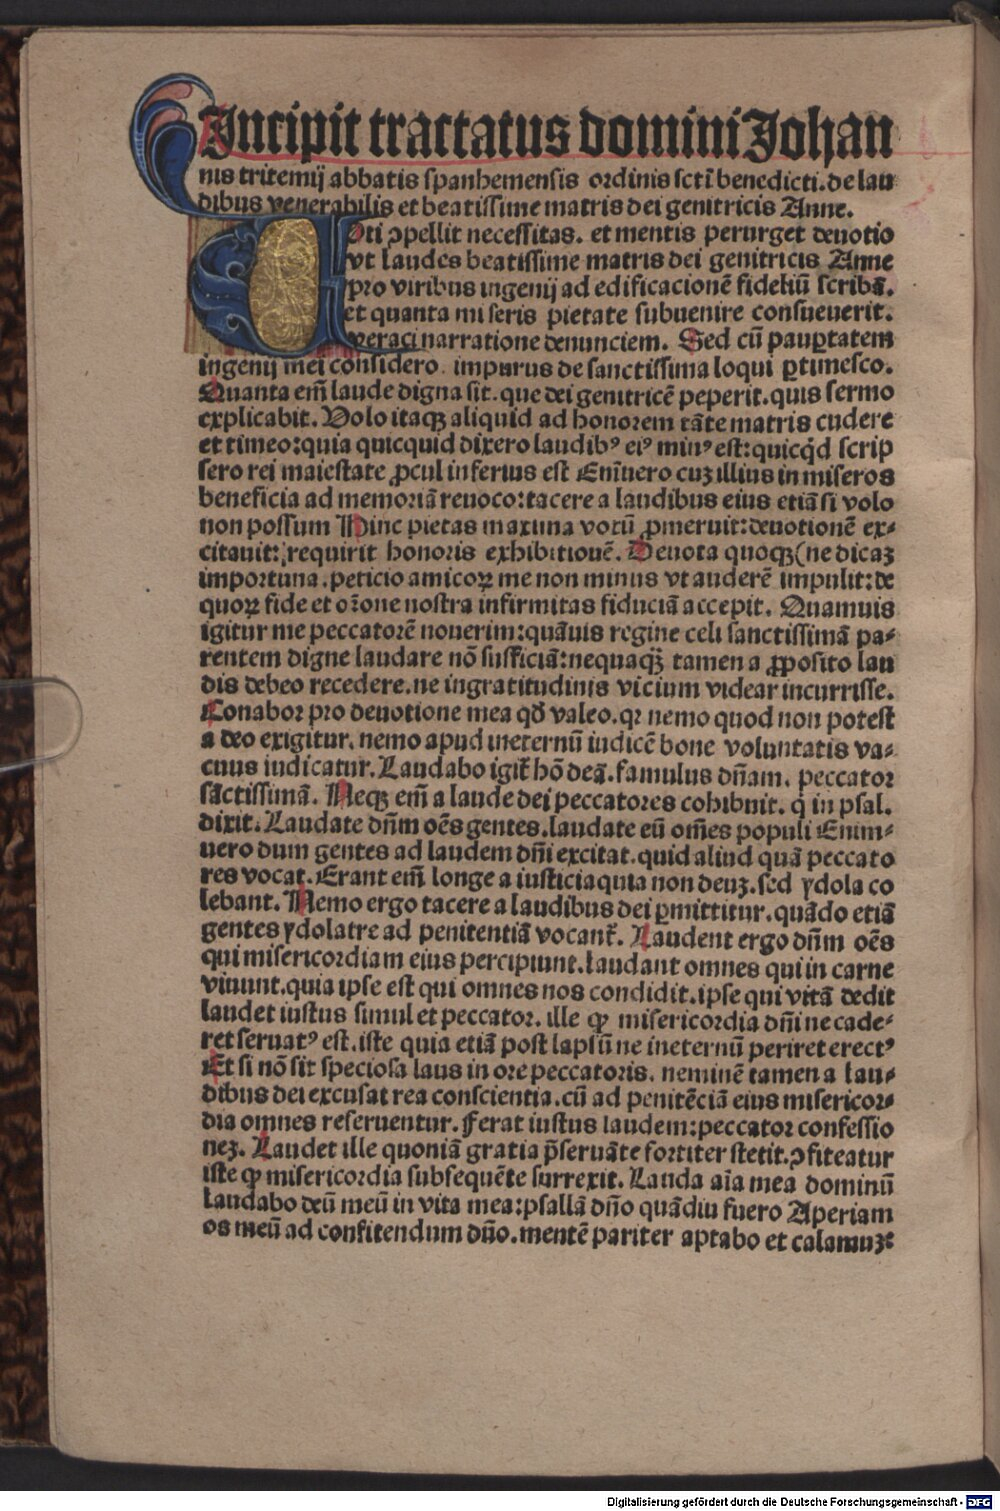 Incipit tractatus domini Johan
nis tritemij abbatis spanhemensis ordinis scti̅ benedicti. de lau
dibus venerabilis et beatissime matris dei genitricis Anne.
VOti ꝯpellit necessitas. et mentis perurget deuotio
vt laudes beatissime matris dei genitricis Anne
pro viribus ingenij ad edificacionē fideliū scribā.
et quanta miseris pietate subuenire consueuerit.
veraci narratione denunciem. Sed cū paup̱tatem
ingenij mei considero. impurus de sanctissima loqui ꝑtimesco.
Quanta em̄ laude digna sit. que dei genitricē peperit. quis sermo
explicabit. Volo itaqꝫ aliquid ad honorem tāte matris cudere
et timeo: quia quicquid dixero laudibꝰ eiꝰ minꝰ est: quicq̇d scrip
sero rei maiestate ꝓcul inferius est Enīuero cuꝫ illius in miseros
beneficia ad memoriā reuoco: tacere a laudibus eius etiā si volo
non possum Hinc pietas maxima votū ꝓmeruit: deuotionē ex⸗
citauit: requirit honoris exhibitionē. Deuota quoqꝫ (ne dicaꝫ
importuna. peticio amicoꝝ me non minus vt auderē impulit: de
quoꝝ fide et or̄one nostra infirmitas fiduciā accepit. Quamuis
igitur me peccatorē nouerim: quāuis regine celi sanctissimā pa⸗
rentem digne laudare nō sufficiā: nequaqꝫ̄ tamen a ꝓposito lau
dis debeo recedere. ne ingratitudinis vicium videar incurrisse.
Conabor pro deuotione mea qd̄ valeo. qꝛ nemo quod non potest
a deo exigitur. nemo apud ineternū iudicē bone voluntatis va⸗
cuus iudicatur. Laudabo igit̄ hō deā. famulus dn̄am. peccator
sāctissimā. Neqꝫ em̄ a laude dei peccatores cohibuit. q̇ in psal.
dixit. Laudate dn̄m oēs gentes. laudate eū om̄es populi Enim⸗
uero dum gentes ad laudem dn̄i excitat. quid aliud quā peccato
res vocat. Erant em̄ longe a iusticia quia non deuꝫ. sed ydola co
lebant. Nemo ergo tacere a laudibus dei ꝑmittitur. quādo etiā
gentes ydolatre ad penitentiā vocant̄. Laudent ergo dn̄m oēs
qui misericordiam eius percipiunt. laudant omnes qui in carne
viuunt. quia ipse est qui omnes nos condidit. ipse qui vitā dedit
laudet iustus simul et peccator. ille ꝙ misericordia dn̄i ne cade⸗
ret seruatꝰ est. iste quia etiā post lapsū ne ineternū periret erectꝰ
Et si nō sit speciosa laus in ore peccatoris. neminē tamen a lau⸗
dibus dei excusat rea conscientia. cū ad penitēciā eius misericor⸗
dia omnes reseruentur. Ferat iustus laudem: peccator confessio
neꝫ. Laudet ille quoniā gratia p̄seruāte fortiter stetit. ꝯfiteatur
iste ꝙ misericordia subsequēte surrexit. Lauda aīa mea dominū
Laudabo deū meū in vita mea: psallā dn̄o quādiu fuero Aperiam
os meū ad confitendum dn̄o. mentē pariter aptabo et calamuꝫ:
Digitalisierung gefördert durch die Deutsche Forschungsgemeinschaft - DFG